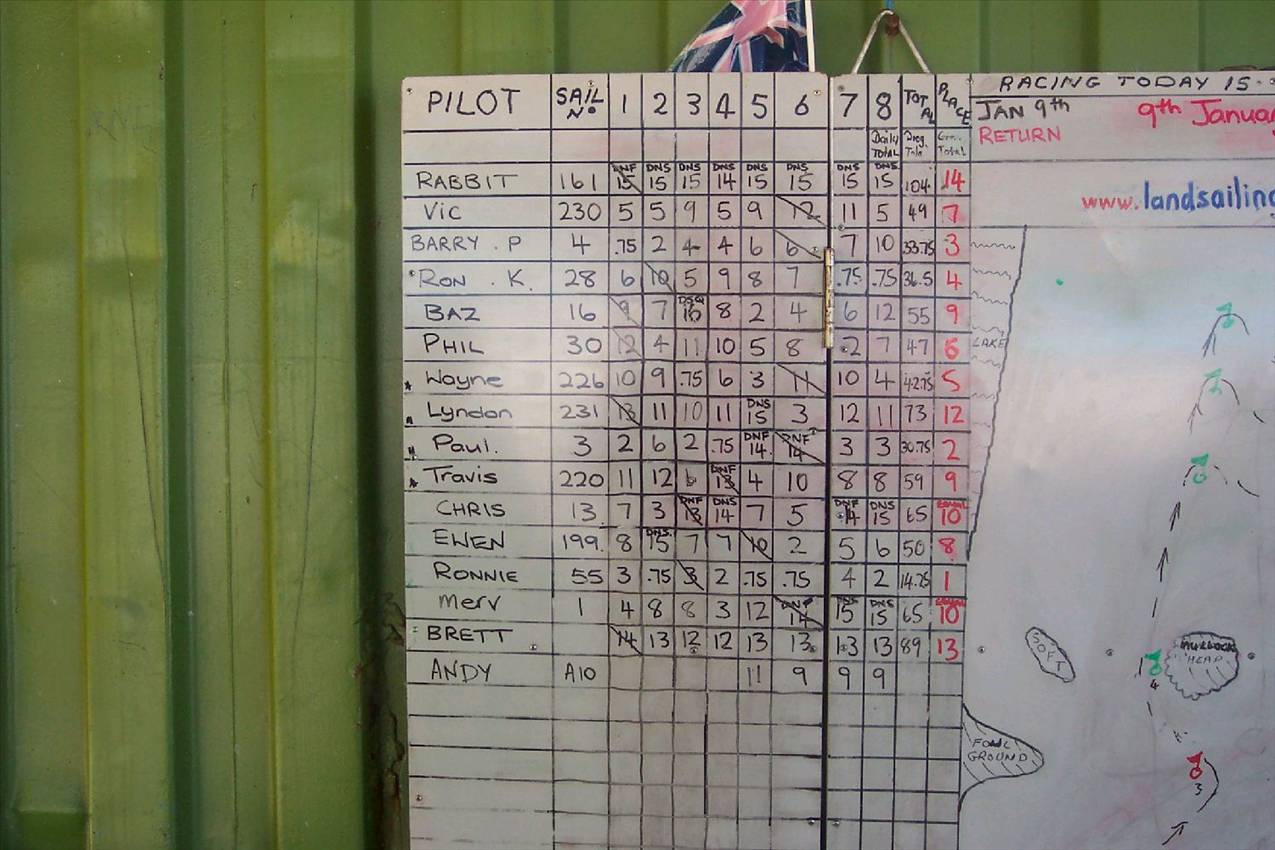 PILOT SAIL No 1 2 3 4 5 6 7 8 TOTAL PLACE RACING TODAY 15
JAN 9th 9th Januar
Daily TOTAL Prog Total TOTAL RETURN
RABBIT 161 DNF 15 DNS 15 DNS 15 DNS 14 DNS 15 DNS 15 DNS 15 DNS 15 104 14
Vic 230 5 5 9 5 9 12 11 5 49 7 www.landsailing
BARRY . P 4 .75 2 4 4 6 6 7 10 33.75 3
Ron . K. 28 6 10 5 9 8 7 .75 .75 36.5 4
BAZ 16 9 7 DSQ 16 8 2 4 6 12 55 9
PHIL 30 12 4 11 10 5 8 2 7 47 6 LAKE
Wayne 226 10 9 .75 6 3 11 10 4 42.75 5
Lyndon 231 13 11 10 11 DNS 15 3 12 11 73 12
Paul. 3 2 6 2 .75 DNF 14 DNF 14 3 3 30.75 2
Travis 220 11 12 6 DNF 13 4 10 8 8 59 9
CHRIS 13 7 3 DNF 13 DNS 14 7 5 DNF 14 DNS 15 65 EQUAL 10
EWEN 199 8 DNS 15 7 7 10 2 5 6 50 8
RONNIE 55 3 .75 3 2 .75 .75 4 2 14.25 1
merv 1 4 8 8 3 12 DNF 14 DNS 15 DNS 15 65 EQUAL 10
BRETT 14 13 12 12 13 13 13 13 89 13
SOFT HEAP
ANDY A10 11 9 9 9
4
FOUL
GROUND
3